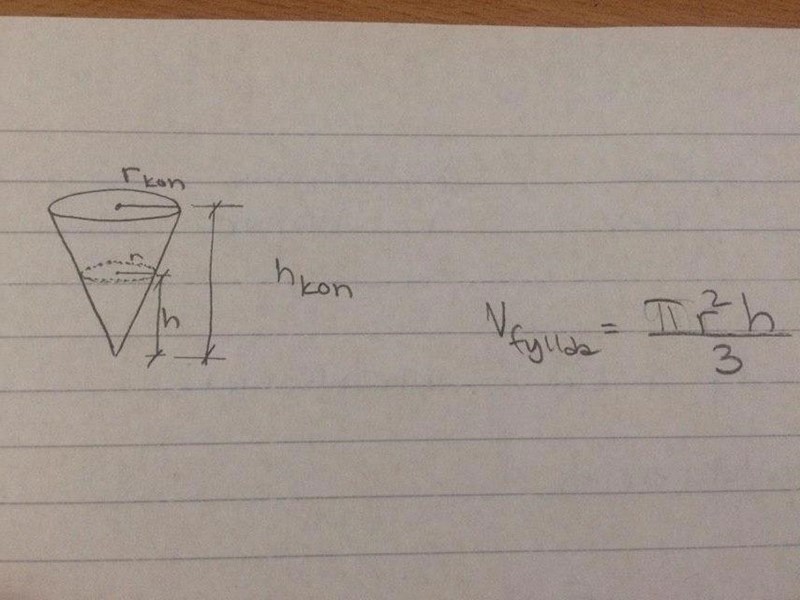 r_kon
r
h
h_kon
V_fyllda = πr²h / 3